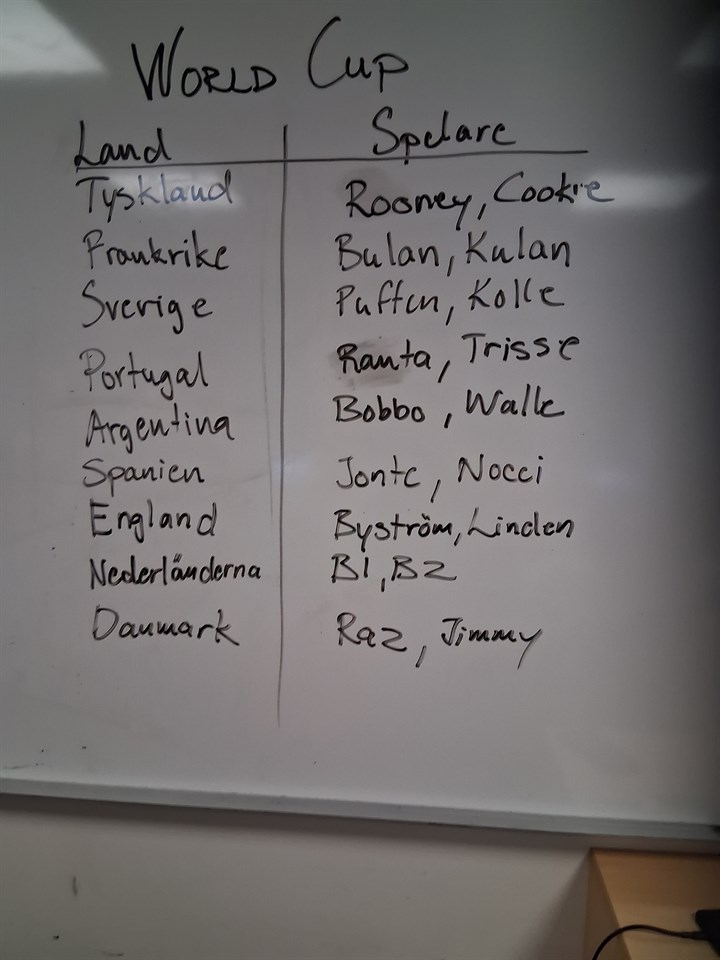 WORLD CUP
Land Spelare
Tyskland Rooney, Cookie
Frankrike Bulan, Kulan
Sverige Puffen, Kolle
Portugal Ranta, Trisse
Argentina Bobbo, Walle
Spanien Jonte, Nocci
England Byström, Linden
Nederländerna B1, B2
Danmark Raz, Jimmy